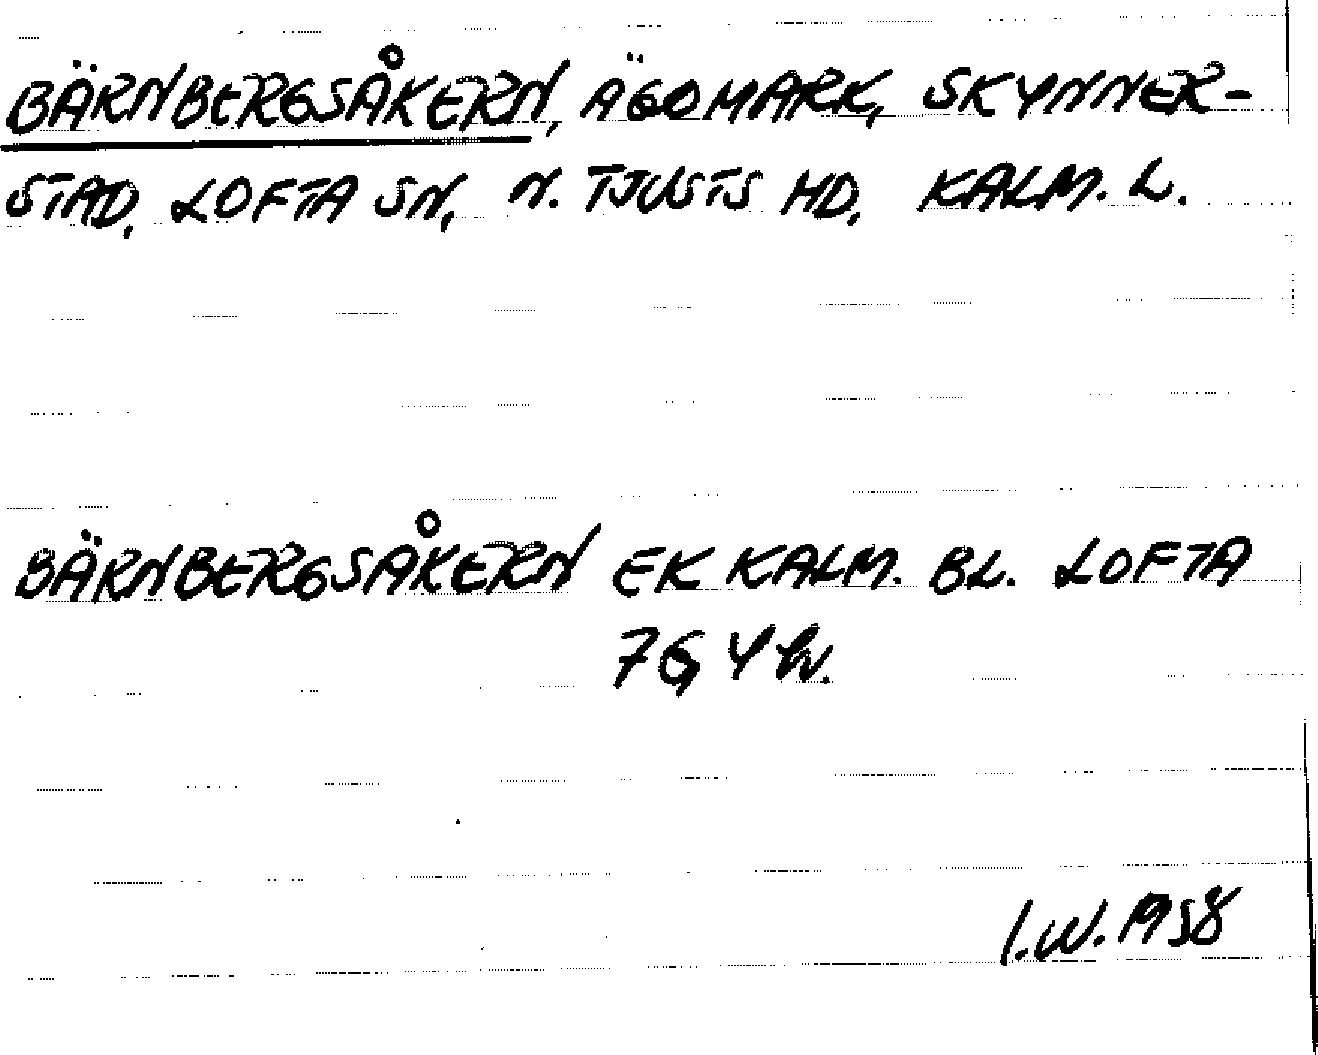 BÄRNBERGSÅKERN, ÄGOMARK, SKYNNER-
STAD, LOFTA SN, N. TJUSTS HD, KALM. L.
BÄRNBERGSÅKERN EK KALM. BL. LOFTA
76, 4 hv.
I.W. 1958